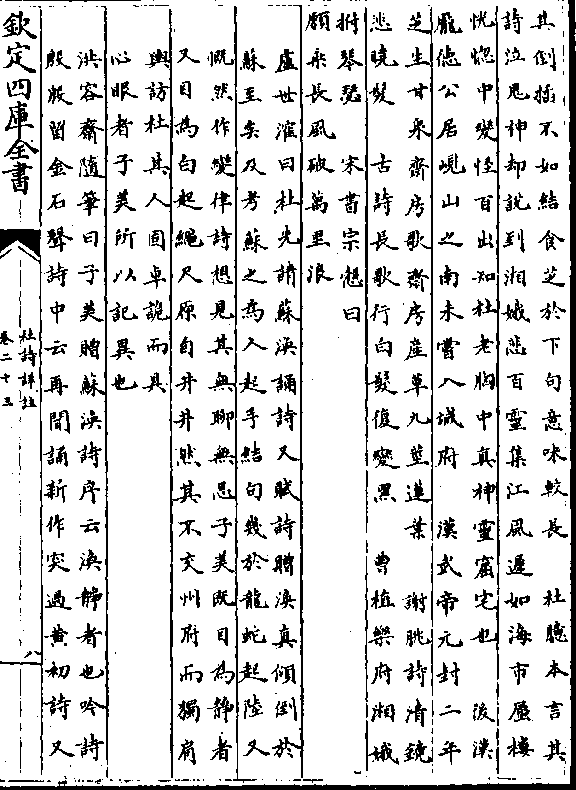 其倒插不如結食芝於下句意味較長　杜臆本言其
詩泣鬼神却說到湘娥悲百靈集江風遲如海市蜃樓
恍惚中變怪百出知杜老胸中真神靈窟宅也　後漢
龐德公居峴山之南未嘗入城府　漢武帝元封二年
芝生甘泉齋房歌齋房産草九莖連葉　謝朓詩清鏡
悲曉髮　古詩長歌行白髮復變黑　曹植樂府湘娥
拊琴瑟　宋書宗慤曰
願乘長風破萬里浪
盧世㴶曰杜先請蘇渙誦詩又賦詩贈渙真傾倒於
蘇至矣及考蘇之為人起手結句幾於龍蛇起陸又
慨然作變律詩想見其無聊無忌子美既目為靜者
又目為白起繩尺原自井井然其不交州府而獨肩
輿訪杜其人固卓詭而具
心眼者子美所以記異也
洪容齋隨筆曰子美贈蘇渙詩序云渙靜者也吟詩
殷殷留金石聲詩中云再聞誦新作突過黄初詩又
欽定四庫全書
杜詩詳註
卷二十三
八